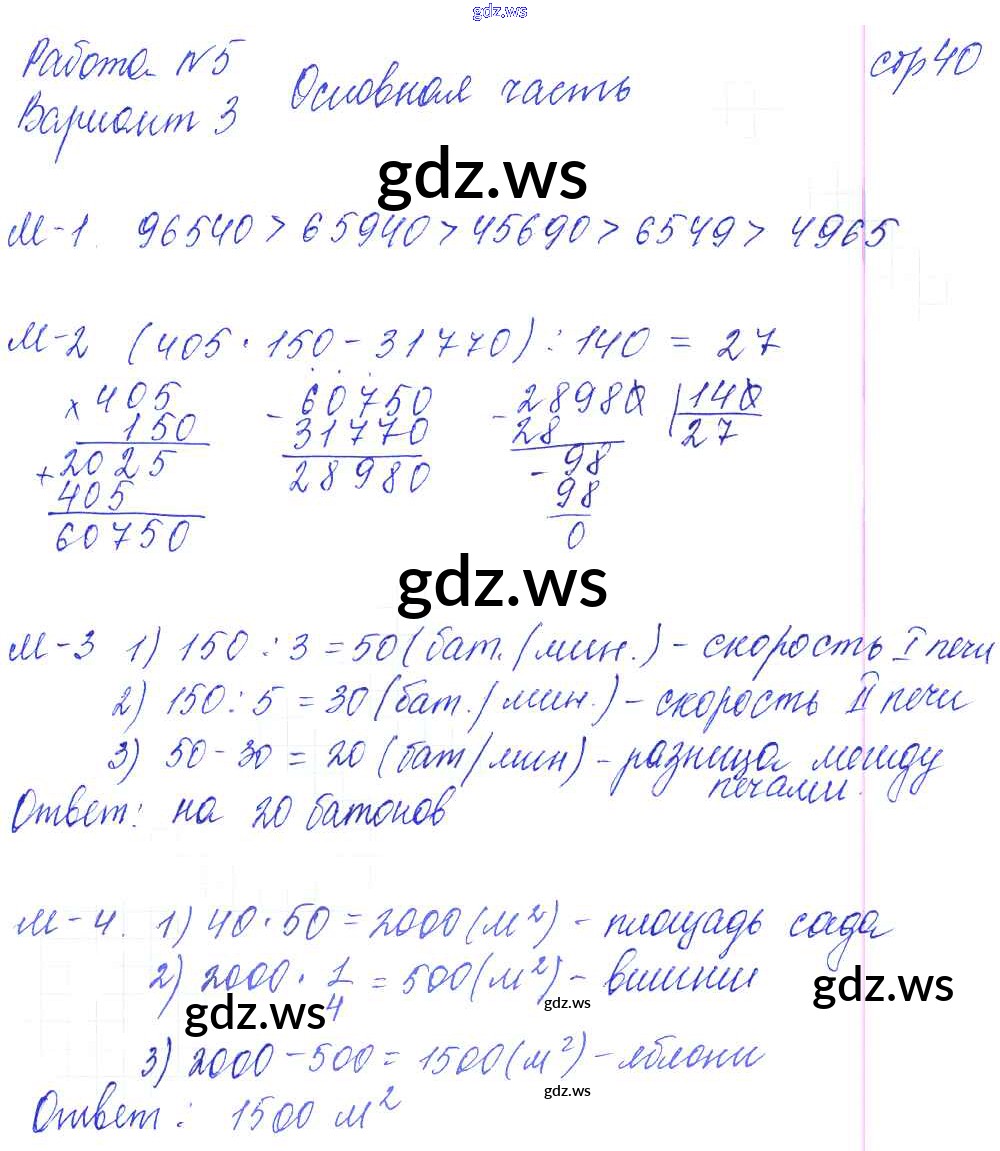 gdz.ws
Работа №5 стр 40
Вариант 3 Основная часть
gdz.ws
М-1. 96540 > 65940 > 45690 > 6549 > 4965
М-2 (405 · 150 - 31770) : 140 = 27
× 405 - 60750 - 28980 | 140
150 31770 28 27
+ 2025 28980 - 98
405 98
60750 0
gdz.ws
М-3 1) 150 : 3 = 50 (бат. / мин.) - скорость I печи
2) 150 : 5 = 30 (бат. / мин.) - скорость II печи
3) 50 - 30 = 20 (бат / мин) - разница между
печами.
Ответ: на 20 батонов
М-4. 1) 40 · 50 = 2000 (м²) - площадь сада
2) 2000 · 1/4 = 500 (м²) - вишни
gdz.ws
gdz.ws
gdz.ws
3) 2000 - 500 = 1500 (м²) - яблони
gdz.ws
Ответ: 1500 м²